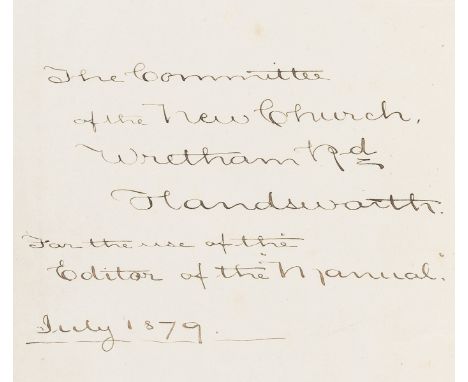 The Committee
of the New Church,
Wretham Rd
Handsworth.
For the use of the
Editor of the "Manual."
July 1879.